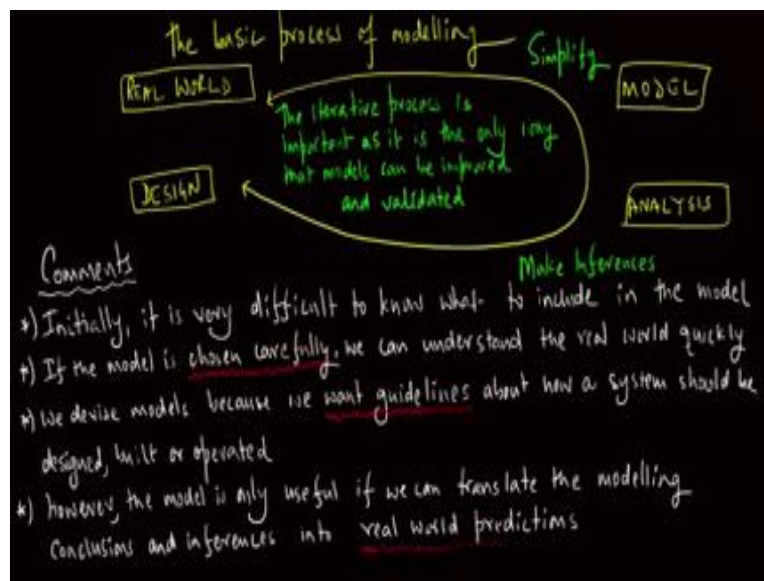 The basic process of modelling
Simplify
REAL WORLD
MODEL
The iterative process is
important as it is the only way
that models can be improved
and validated
DESIGN
ANALYSIS
Make Inferences
Comments
*) Initially, it is very difficult to know what to include in the model
*) If the model is chosen carefully, we can understand the real world quickly
*) we devise models because we want guidelines about how a system should be
designed, built or operated
*) however, the model is only useful if we can translate the modelling
conclusions and inferences into real world predictions